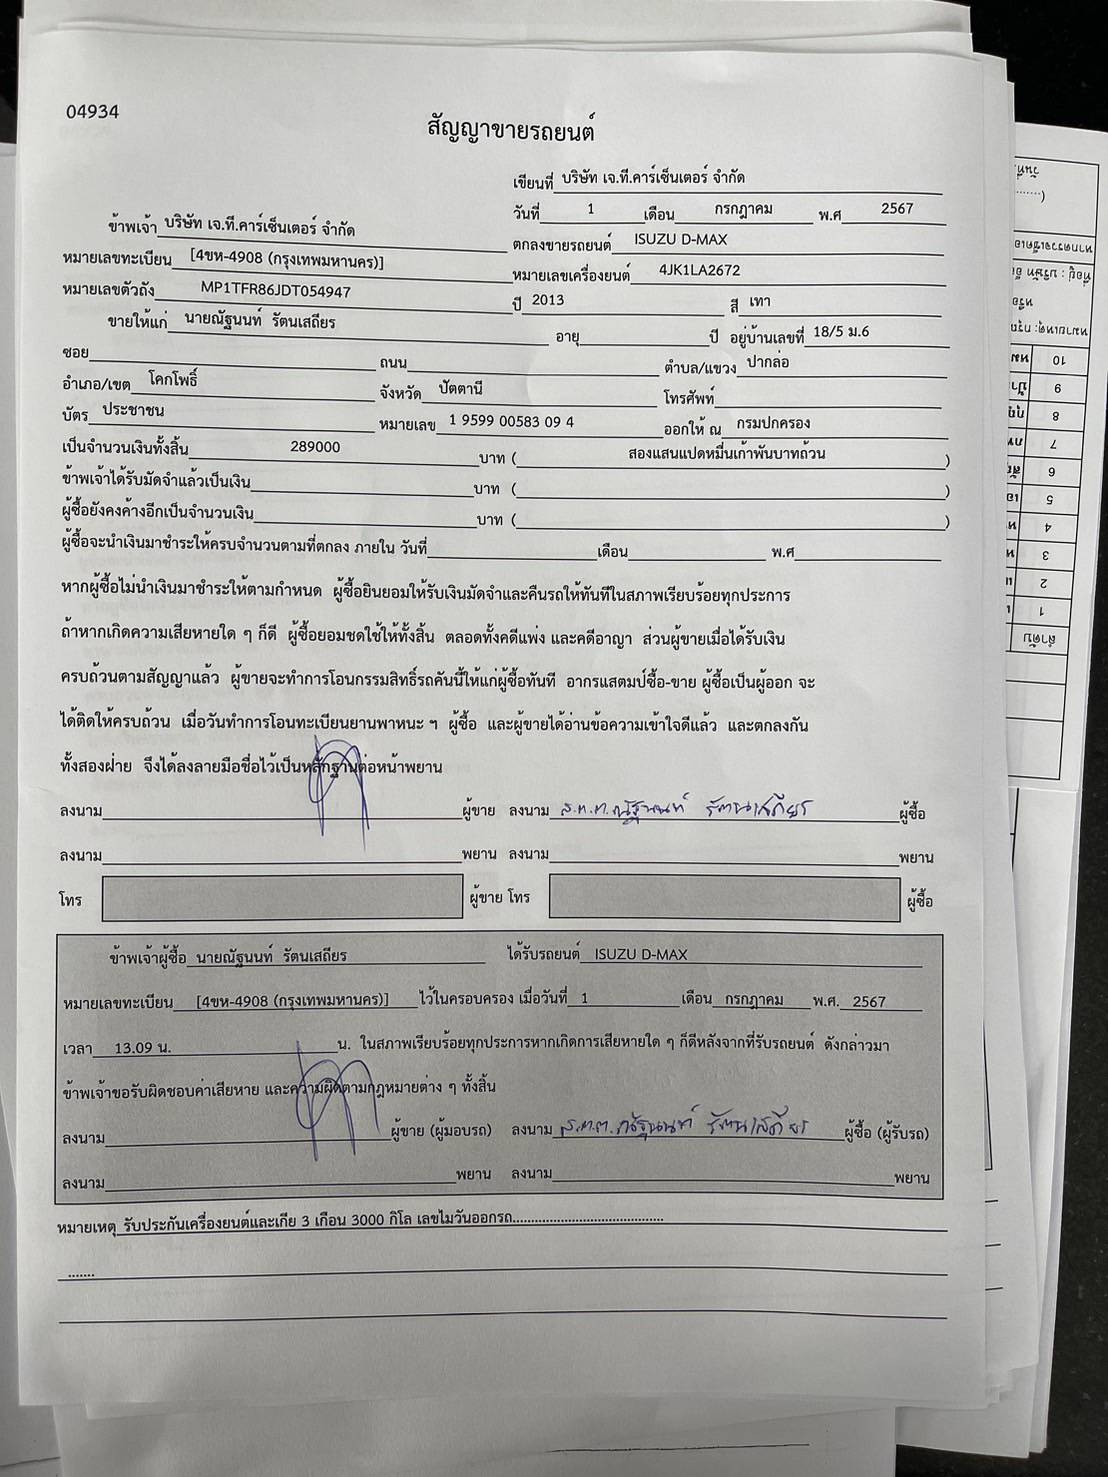 04934
สัญญาขายรถยนต์
เขียนที่ บริษัท เจ.ที.คาร์เซ็นเตอร์ จำกัด
วันที่ 1 เดือน กรกฎาคม พ.ศ 2567
ข้าพเจ้า บริษัท เจ.ที.คาร์เซ็นเตอร์ จำกัด ตกลงขายรถยนต์ ISUZU D-MAX
หมายเลขทะเบียน [4ขห-4908 (กรุงเทพมหานคร)] หมายเลขเครื่องยนต์ 4JK1LA2672
หมายเลขตัวถัง MP1TFR86JDT054947 ปี 2013 สี เทา
ขายให้แก่ นายณัฐนนท์ รัตนเสถียร อายุ ปี อยู่บ้านเลขที่ 18/5 ม.6
ซอย ถนน ตำบล/แขวง ปากล่อ
อำเภอ/เขต โคกโพธิ์ จังหวัด ปัตตานี โทรศัพท์
บัตร ประชาชน หมายเลข 1 9599 00583 09 4 ออกให้ ณ กรมปกครอง
เป็นจำนวนเงินทั้งสิ้น 289000 บาท ( สองแสนแปดหมื่นเก้าพันบาทถ้วน )
ข้าพเจ้าได้รับมัดจำแล้วเป็นเงิน บาท ( )
ผู้ซื้อยังคงค้างอีกเป็นจำนวนเงิน บาท ( )
ผู้ซื้อจะนำเงินมาชำระให้ครบจำนวนตามที่ตกลง ภายใน วันที่ เดือน พ.ศ
หากผู้ซื้อไม่นำเงินมาชำระให้ตามกำหนด ผู้ซื้อยินยอมให้รับเงินมัดจำและคืนรถให้ทันทีในสภาพเรียบร้อยทุกประการ
ถ้าหากเกิดความเสียหายใด ๆ ก็ดี ผู้ซื้อยอมชดใช้ให้ทั้งสิ้น ตลอดทั้งคดีแพ่ง และคดีอาญา ส่วนผู้ขายเมื่อได้รับเงิน
ครบถ้วนตามสัญญาแล้ว ผู้ขายจะทำการโอนกรรมสิทธิ์รถคันนี้ให้แก่ผู้ซื้อทันที อากรแสตมป์ซื้อ-ขาย ผู้ซื้อเป็นผู้ออก จะ
ได้ติดให้ครบถ้วน เมื่อวันทำการโอนทะเบียนยานพาหนะ ฯ ผู้ซื้อ และผู้ขายได้อ่านข้อความเข้าใจดีแล้ว และตกลงกัน
ทั้งสองฝ่าย จึงได้ลงลายมือชื่อไว้เป็นหลักฐานต่อหน้าพยาน
ลงนาม ผู้ขาย ลงนาม ส.ต.ต.ณัฐนนท์ รัตนเสถียร ผู้ซื้อ
ลงนาม พยาน ลงนาม พยาน
โทร ผู้ขาย โทร ผู้ซื้อ
ข้าพเจ้าผู้ซื้อ นายณัฐนนท์ รัตนเสถียร ได้รับรถยนต์ ISUZU D-MAX
หมายเลขทะเบียน [4ขห-4908 (กรุงเทพมหานคร)] ไว้ในครอบครอง เมื่อวันที่ 1 เดือน กรกฎาคม พ.ศ. 2567
เวลา 13.09 น. น. ในสภาพเรียบร้อยทุกประการหากเกิดการเสียหายใด ๆ ก็ดีหลังจากที่รับรถยนต์ ดังกล่าวมา
ข้าพเจ้าขอรับผิดชอบค่าเสียหาย และความผิดตามกฎหมายต่าง ๆ ทั้งสิ้น
ลงนาม ผู้ขาย (ผู้มอบรถ) ลงนาม ส.ต.ต.ณัฐนนท์ รัตนเสถียร ผู้ซื้อ (ผู้รับรถ)
ลงนาม พยาน ลงนาม พยาน
หมายเหตุ รับประกันเครื่องยนต์และเกีย 3 เกือน 3000 กิโล เลขไมวันออกรถ........................................
.......
ลำดับ
1
2
3
4
5
6
7
8
9
10